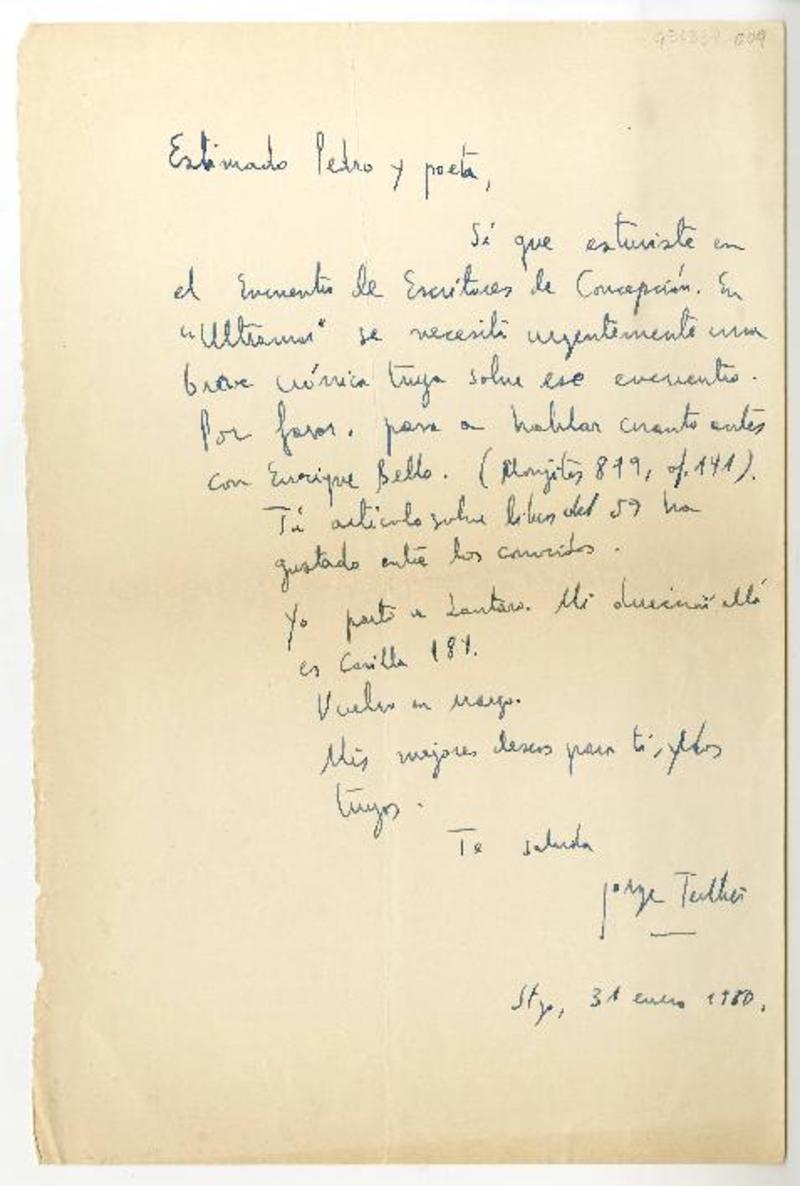 Estimado Pedro y poeta,
Sé que estuviste en
el Encuentro de Escritores de Concepción. En
"Ultramar" se necesita urgentemente una
breve crónica tuya sobre ese encuentro.
Por favor, pasa a hablar cuanto antes
con Enrique Bello. (Monjitas 879, of. 141).
Tu artículo sobre libros del 59 ha
gustado entre los conocidos.
Yo parto a Lautaro. Mi dirección allá
es Casilla 181.
Vuelvo en marzo.
Mis mejores deseos para ti, y los
tuyos.
Te saluda
Jorge Teillier
Stgo, 31 enero 1960.